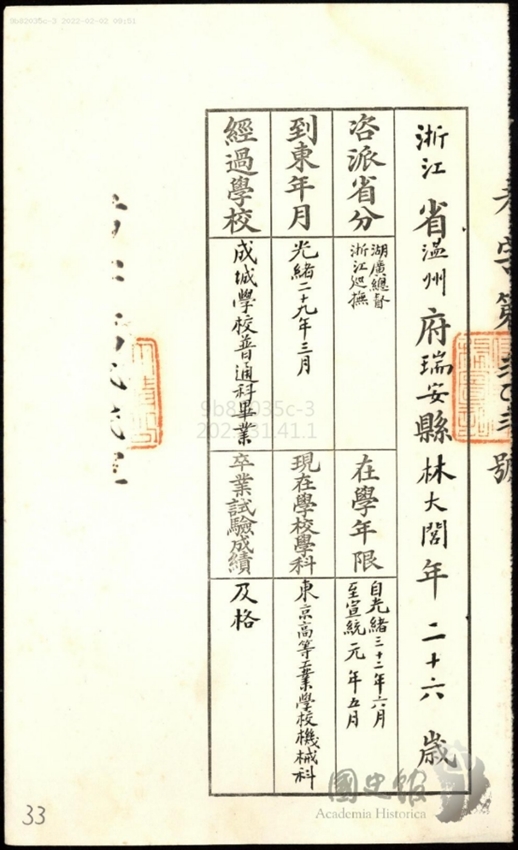 9b82035c-3 2022-02-02 09:51
號
浙江省溫州府瑞安縣林大閭年二十六歲
咨派省分
湖廣總督
浙江巡撫
在學年限
自光緒三十二年六月
至宣統元年五月
到東年月
光緒二十九年三月
現在學校學科
東京高等工業學校機械科
經過學校
成城學校普通科畢業
卒業試驗成績
及格
9b82035c-3
國史館
Academia Historica
33